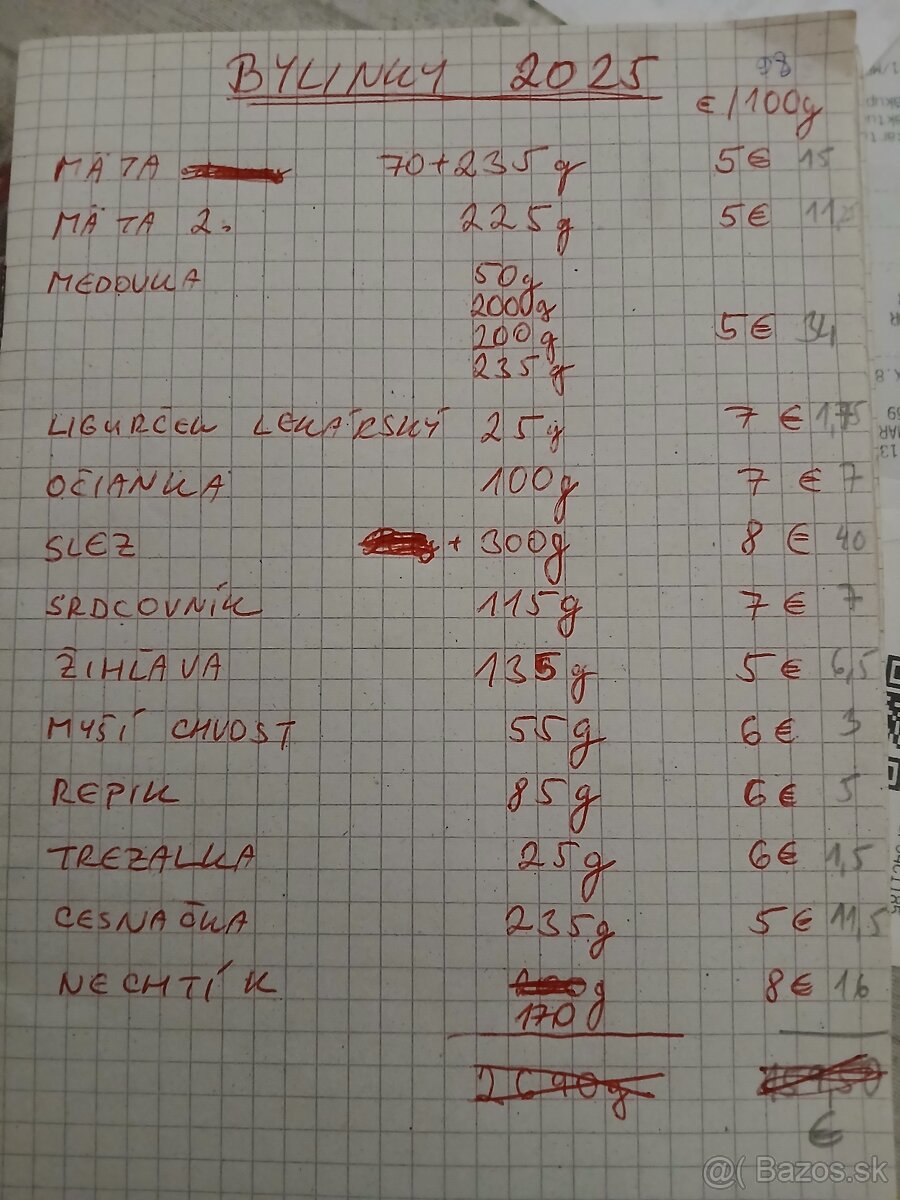 BYLINKY 2025
98
€/100g
MÄTA 70+235g 5€ 15
MÄTA 2. 225g 5€
MEDOVKA 50g
2000g
200g 5€ 34
235g
LIGURČEK LEKÁRSKÝ 25g 7 € 1,75
OČIANKA 100g 7 € 7
SLEZ + 300g 8 € 40
SRDCOVNÍK 115g 7 € 7
ŽIHĽAVA 135g 5 € 6,5
MYŠÍ CHVOST 55g 6€ 3
REPIK 85g 6€ 5
TREZALKA 25g 6€ 1,5
CESNAČKA 235g 5€ 11,5
NECHTÍK g 8€ 16
170g
2690g
€
@( Bazos.sk